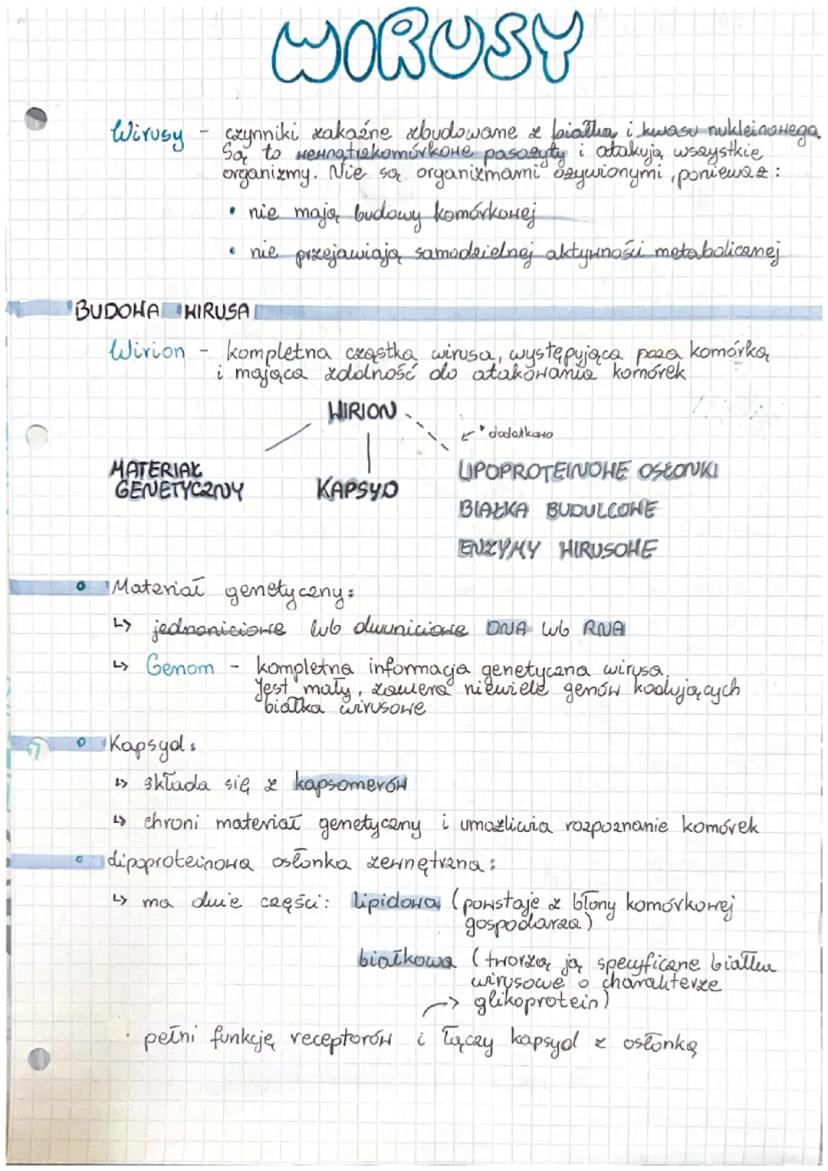 WIRUSY
Wirusy - czynniki zakaźne zbudowane z białka i kwasu nukleinowego.
Są to wewnątrzkomórkowe pasożyty i atakują wszystkie
organizmy. Nie są organizmami ożywionymi, ponieważ:
• nie mają budowy komórkowej
• nie przejawiają samodzielnej aktywności metabolicznej
BUDOWA WIRUSA
Wirion - kompletna cząstka wirusa, występująca poza komórką
i mająca zdolność do atakowania komórek
WIRION
* dodatkowo
MATERIAŁ
GENETYCZNY
KAPSYD
LIPOPROTEINOWE OSŁONKI
BIAŁKA BUDULCOWE
ENZYMY WIRUSOWE
Materiał genetyczny:
↳ jednoniciowe lub dwuniciowe DNA lub RNA
↳ Genom - kompletna informacja genetyczna wirusa.
Jest mały, zawiera niewiele genów kodujących
białka wirusowe
Kapsyd:
↳ składa się z kapsomerów
↳ chroni materiał genetyczny i umożliwia rozpoznanie komórek
Lipoproteinowa osłonka zewnętrzna:
↳ ma dwie części: lipidową (powstaje z błony komórkowej
gospodarza)
białkową (tworzą ją specyficzne białka
wirusowe o charakterze
→ glikoprotein)
· pełni funkcję receptorów i łączy kapsyd z osłonką